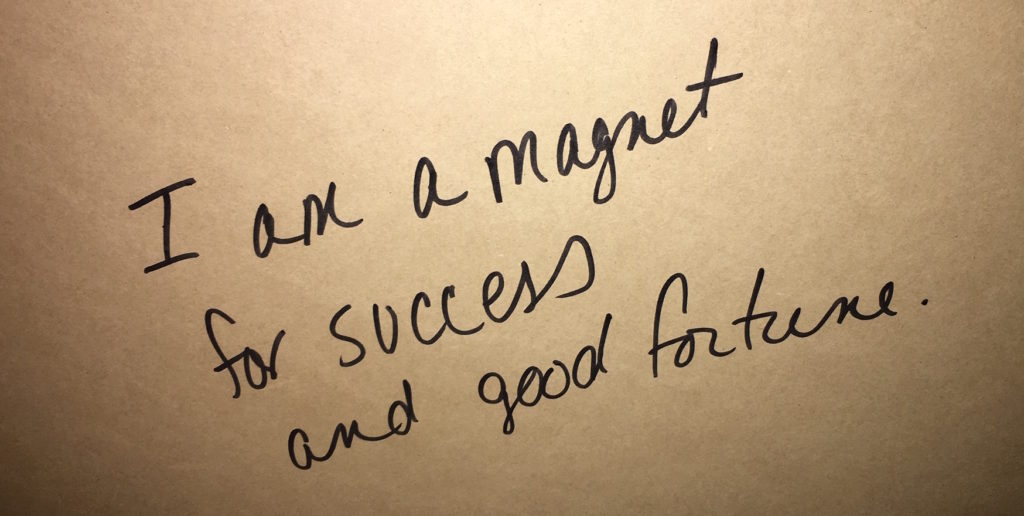 I am a magnet
for success
and good fortune.